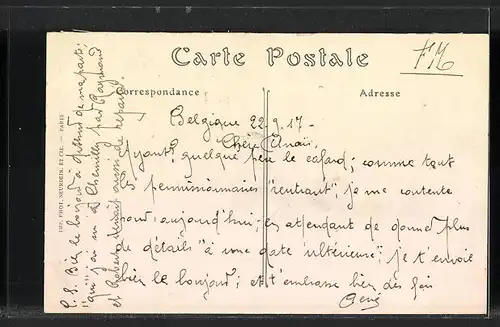 Carte Postale
FM
Correspondance
Adresse
Belgique 22-9-17-
Chère Anaïs,
Ayant quelque peu le cafard; comme tout
permissionnaires "rentrant"; je me contente
pour aujourd'hui; en attendant de donner plus
de détails "à une date ultérieure"; je t'envoie
bien le bonjour; et t'embrasse bien des fois
René
P.S. Bien le bonjour à de ma part;
qui j'ai vu à Chemillé, par Raymond
et Robert; devait aussi de repard.
IMP. PHOT. NEURDEIN ET CIE. — PARIS